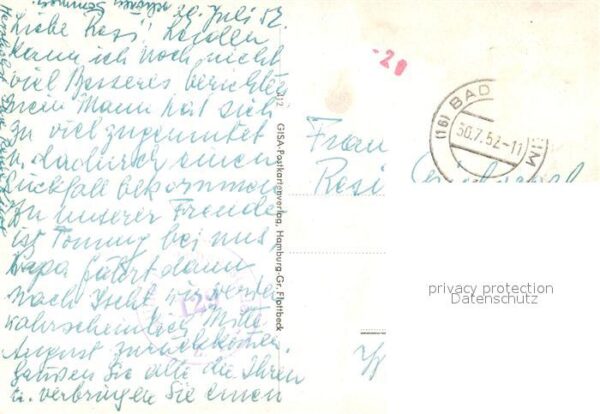 schönen Sommer.
29. Juli 52.
Liebe Resi! Leider
kann ich noch nicht
viel Besseres berichten
mein Mann hat sich
zu viel zugemutet
u. dadurch einen
Rückfall bekommen
Zu unserer Freude
ist Tommy bei uns,
Papa fährt dann
nach Ischl wir werden
wahrscheinlich Mitte
August zurückkommen.
Grüßen Sie alle die Ihren
u. verbringen Sie einen
412 GISA-Postkartenverlag, Hamburg-Gr. Flottbeck
-20
(16) BAD
30.7.52-11
IM
Frau
Resi
privacy protection
Datenschutz